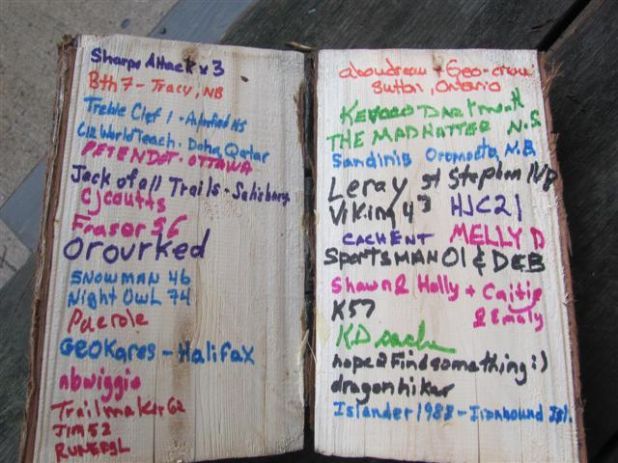 Sharpe Attack x 3
Bth 7 - Tracy, NB
Treble Clef 1 - NS
Liz World Teach - Doha, Qatar
PETENDET - OTTAWA
Jack of all Trails - Salisbury
Cjcoutts
Fraser 56
Orourked
SNOWMAN 46
Night Owl 74
Puerole
GEOKares - Halifax
nbwiggio
Trailmaker62
Jim52
aboudreau + Geo-crew
Sutton, Ontario
Dartmouth
THE MADHATTER N.S
Sandinis Oromocto, N.B
Leray St Stephen NB
Viking 43 HJC21
CACHENT MELLY D
SportsMAN01 & DEB
Shawn & Holly + Caitie
& Emaly
K57
KD
hope2Findsomething:)
dragonhiker
Islander1988 - Ironbound Isl.